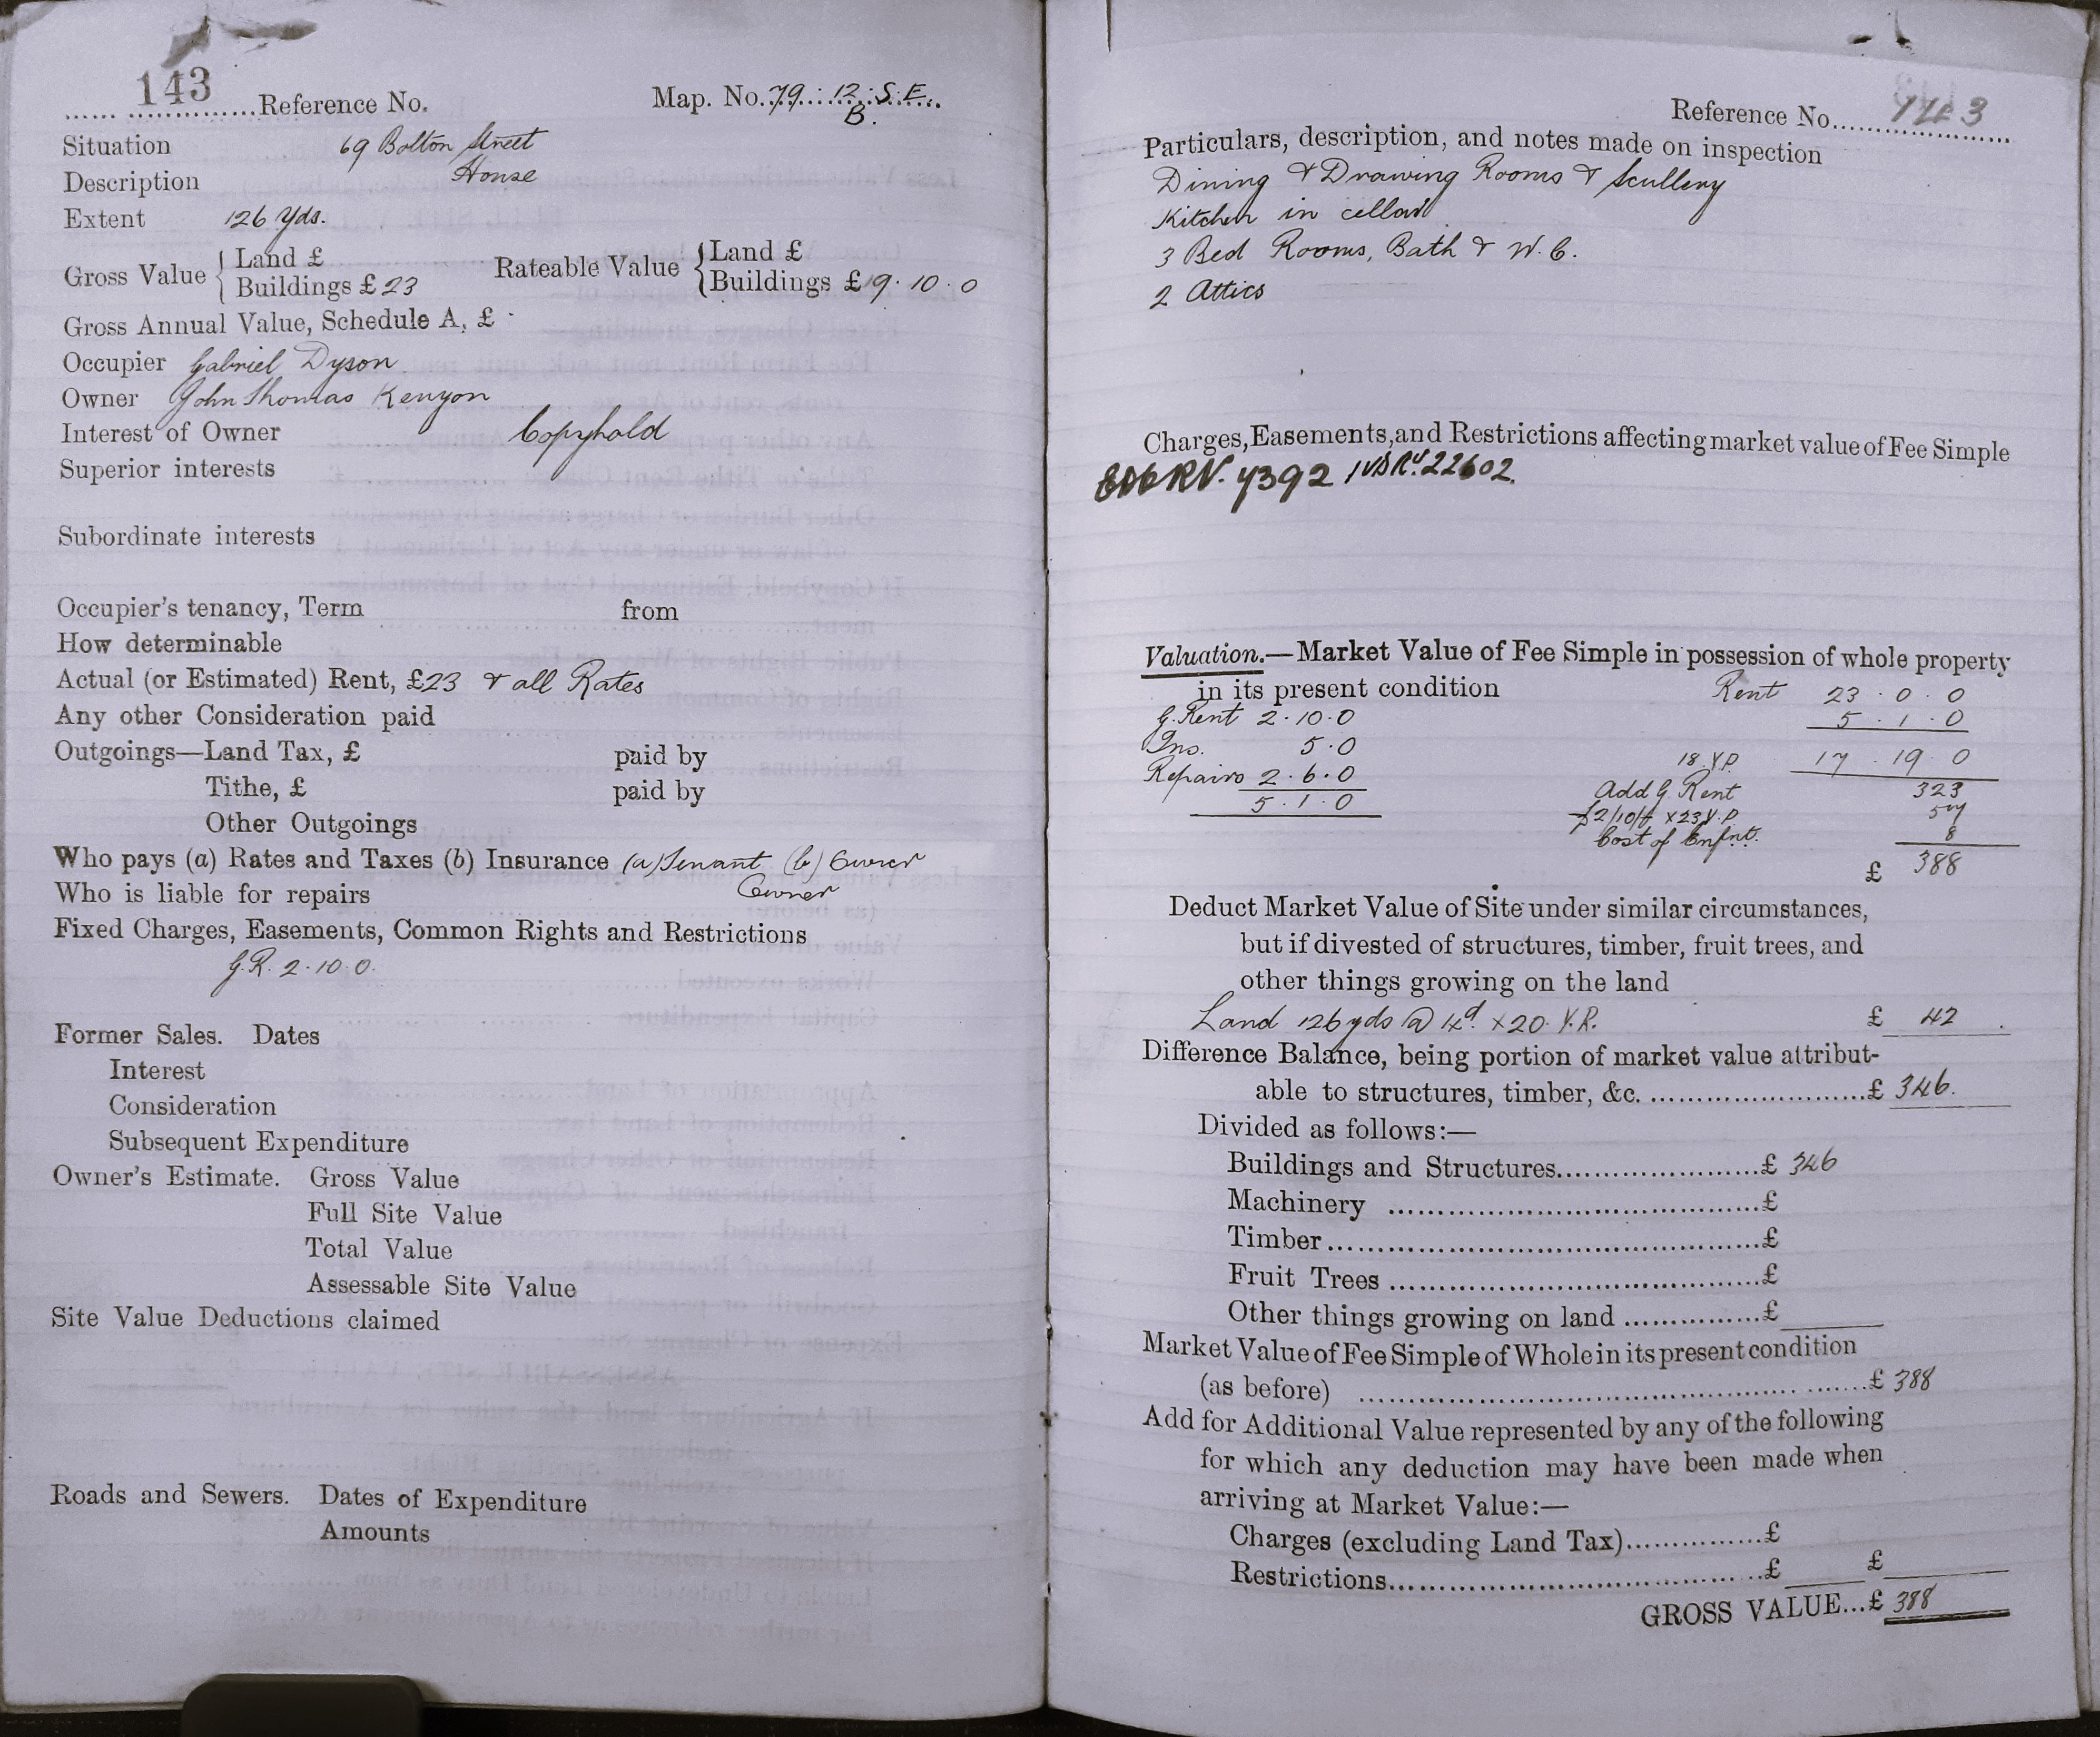 143 Reference No. Map. No. 79 : 12 : S.E.
B.
Situation 69 Bolton Street
Description House
Extent 126 Yds.
Gross Value { Land £
Buildings £ 23
Rateable Value { Land £
Buildings £19 . 10 . 0
Gross Annual Value, Schedule A, £
Occupier Gabriel Dyson
Owner John Thomas Kenyon
Interest of Owner Copyhold
Superior interests
Subordinate interests
Occupier's tenancy, Term from
How determinable
Actual (or Estimated) Rent, £23 & all Rates
Any other Consideration paid
Outgoings—Land Tax, £ paid by
Tithe, £ paid by
Other Outgoings
Who pays (a) Rates and Taxes (b) Insurance (a) Tenant (b) Owner
Who is liable for repairs Owner
Fixed Charges, Easements, Common Rights and Restrictions
G.R. 2 . 10 . 0.
Former Sales. Dates
Interest
Consideration
Subsequent Expenditure
Owner's Estimate. Gross Value
Full Site Value
Total Value
Assessable Site Value
Site Value Deductions claimed
Roads and Sewers. Dates of Expenditure
Amounts
Reference No. 143
Particulars, description, and notes made on inspection
Dining & Drawing Rooms & Scullery
Kitchen in cellar
3 Bed Rooms, Bath & W.C.
2 Attics
Charges, Easements, and Restrictions affecting market value of Fee Simple
22602.
Valuation.—Market Value of Fee Simple in possession of whole property
in its present condition Rent 23 . 0 . 0
G. Rent 2 . 10 . 0 5 . 1 . 0
Ins. 5 . 0
18 Y.P. 17 . 19 . 0
Repairs 2 . 6 . 0
Add G. Rent 323
5 . 1 . 0
£2/10/- x 23 Y.P. 57
Cost of Enfnt. 8
£ 388
Deduct Market Value of Site under similar circumstances,
but if divested of structures, timber, fruit trees, and
other things growing on the land
Land 126 yds @ 4d. x 20. Y.P. £ 42
Difference Balance, being portion of market value attribut-
able to structures, timber, &c. £ 346.
Divided as follows:—
Buildings and Structures £ 346
Machinery £
Timber £
Fruit Trees £
Other things growing on land £
Market Value of Fee Simple of Whole in its present condition
(as before) £ 388
Add for Additional Value represented by any of the following
for which any deduction may have been made when
arriving at Market Value:—
Charges (excluding Land Tax) £
Restrictions £ £
GROSS VALUE...£ 388